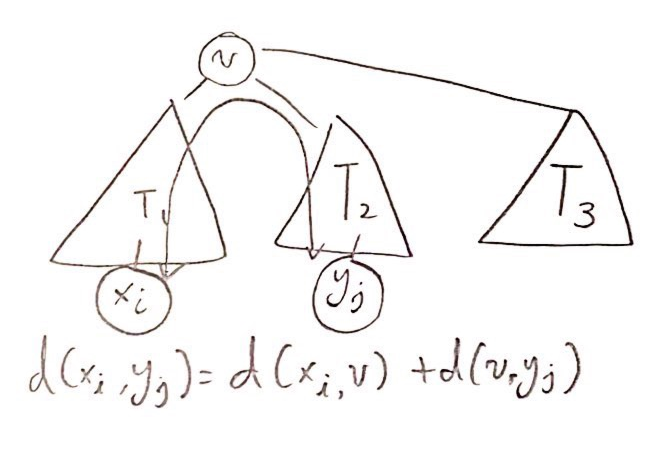 v
T₁
T₂
T₃
xᵢ
yⱼ
d(xᵢ,yⱼ)= d(xᵢ,v) +d(v,yⱼ)